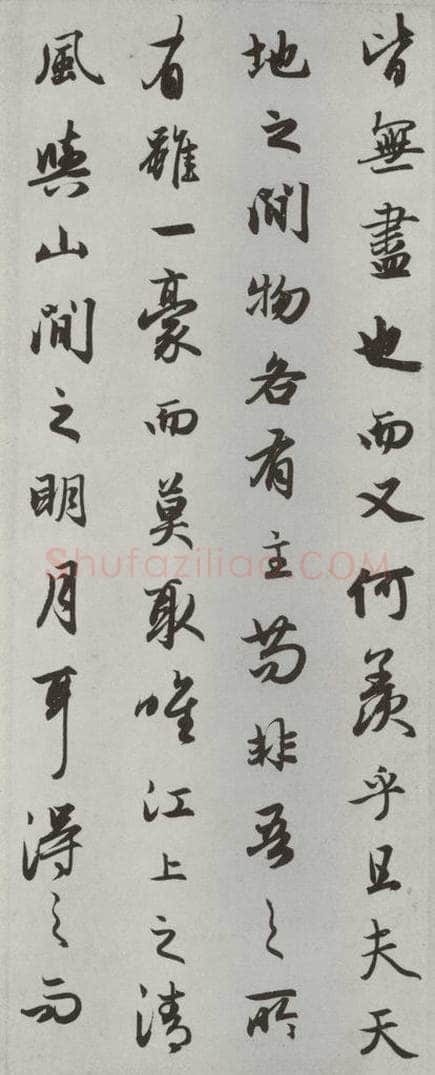 皆無盡也而又何羨乎且夫天
地之間物各有主茍非吾之所
有雖一豪而莫取唯江上之清
風與山間之明月耳得之而
Shufaziliao.COM